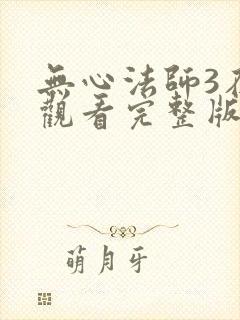 無心法師3在
觀看完整版
萌月牙